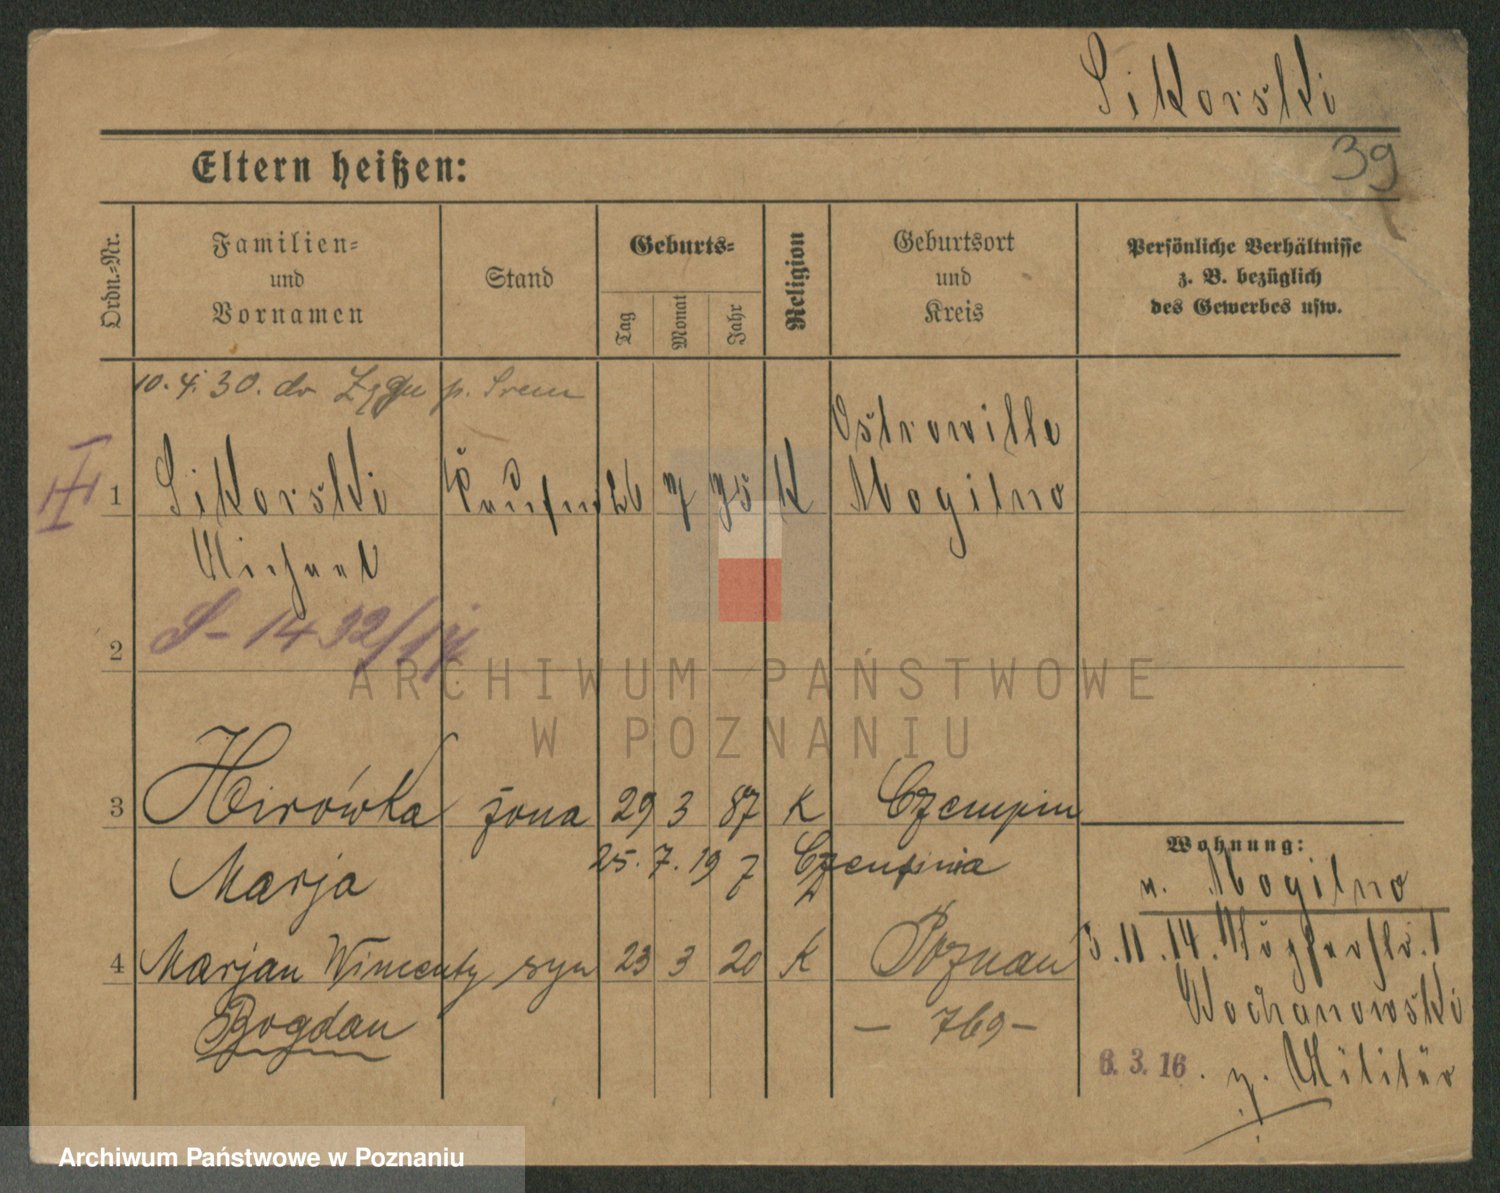 Sikorski
39
Eltern heißen:
Ordn.-Nr.
Familien-
und
Vornamen
Stand
Geburts-
Tag
Monat
Jahr
Religion
Geburtsort
und
Kreis
Persönliche Verhältnisse
z. B. bezüglich
des Gewerbes usw.
10. 4. 30. do p. Srem
III
Ostrowitte
1 Sikorski 26 7 75 K Mogilno
Michael
S-1432/14
2
ARCHIWUM PAŃSTWOWE
W POZNANIU
3 Hirówka żona 29 3 87 K Czempin
Wohnung:
Marja 25. 7. 19 Czempinia
n. Mogilno
3.11.14.
4 Marjan Wincenty syn 23 3 20 K Poznań
Bogdan
– 769 –
Kochanowski
6. 3. 16. z. Militär
Archiwum Państwowe w Poznaniu